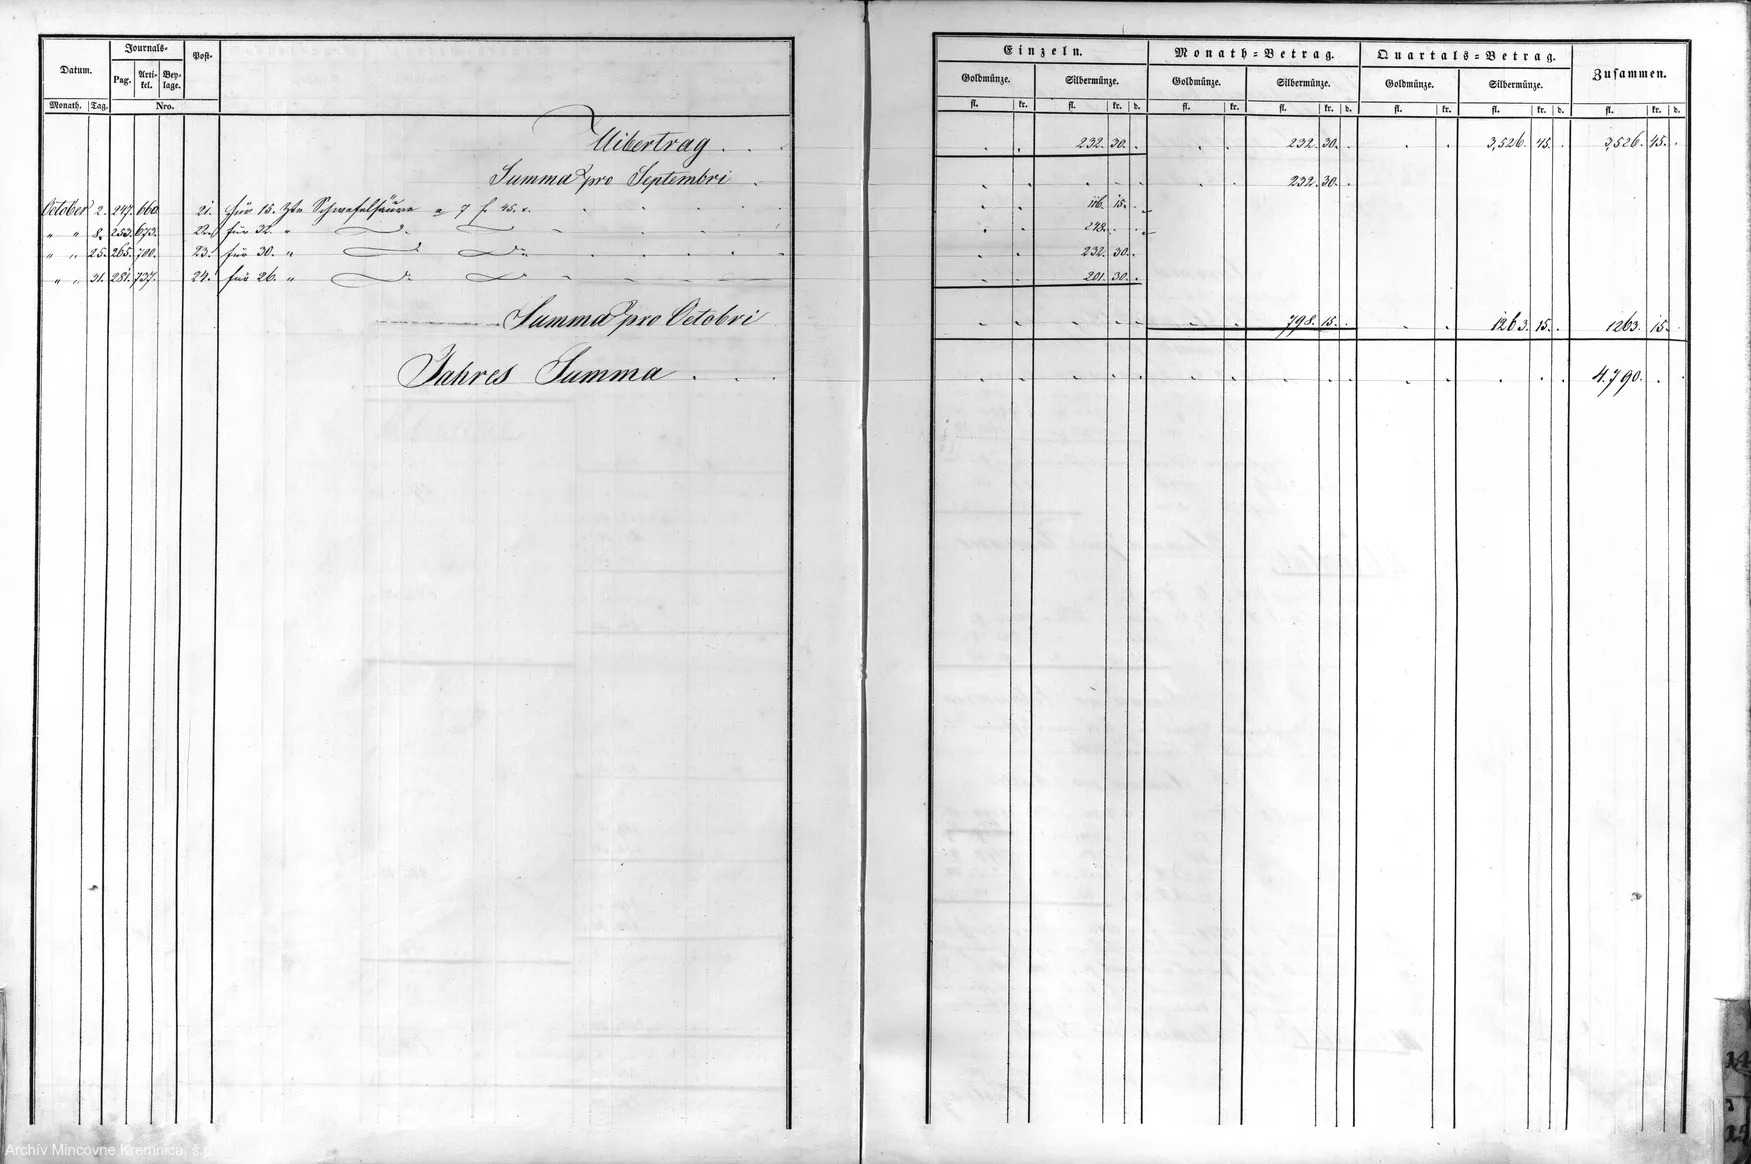 Datum. Journals- Post-
Pag. Arti-kel. Bey-lage.
Monath. Tag. Nro.
Einzeln. Monath-Betrag. Quartals-Betrag. Zusammen.
Goldmünze. Silbermünze. Goldmünze. Silbermünze. Goldmünze. Silbermünze.
fl. kr. fl. kr. d. fl. kr. fl. kr. d. fl. kr. fl. kr. d. fl. kr. d.
Uibertrag . . 232. 30. 232. 30. 3,526. 45. 3,526. 45.
Summa pro Septembri . 232. 30.
October 2. 247. 660. 21. für 15. Ztr Schwefelsäure a 7 f. 45. x. 116. 15.
" " 8. 253. 673. 22. für 32. " Do Do 248.
" " 25. 265. 700. 23. für 30. " Do Do 232. 30.
" " 31. 281. 737. 24. für 26. " Do Do 201. 30.
Summa pro Octobri 798. 15. 1263. 15. 1263. 15.
Jahres Summa . . . 4.790.
14
15
Archív Mincovne Kremnica, š.p.